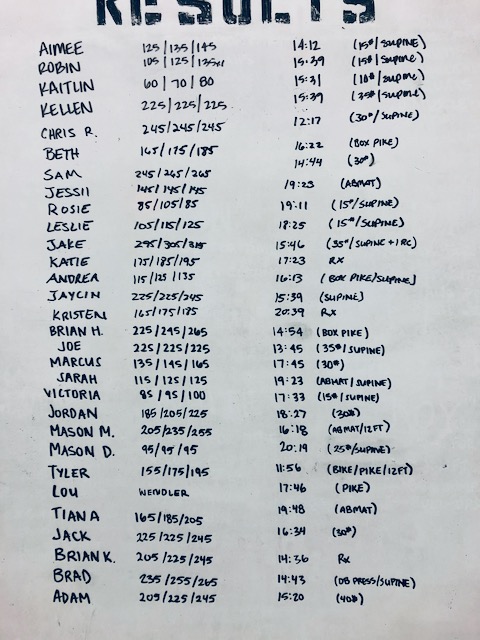 RESULTS
AIMEE 125/135/145 14:12 (15#/SUPINE)
ROBIN 105/125/135x1 15:39 (15#/SUPINE)
KAITLIN 60/70/80 15:31 (10#/SUPINE)
KELLEN 225/225/225 15:39 (35#/SUPINE)
CHRIS R. 245/245/245 12:17 (30#/SUPINE)
BETH 165/175/185 16:22 (BOX PIKE)
SAM 245/265/265 14:44 (30#)
JESSII 145/145/145 19:23 (ABMAT)
ROSIE 85/105/85 19:11 (15#/SUPINE)
LESLIE 105/115/125 18:25 (15#/SUPINE)
JAKE 295/305/315 15:46 (35#/SUPINE+1RC)
KATIE 175/185/195 17:23 RX
ANDREA 115/125/135 16:13 (BOX PIKE/SUPINE)
JAYCIN 225/225/245 15:39 (SUPINE)
KRISTEN 165/175/185 20:39 RX
BRIAN H. 225/245/265 14:54 (BOX PIKE)
JOE 225/225/225 13:45 (35#/SUPINE)
MARCUS 135/145/165 17:45 (30#)
SARAH 115/125/125 19:23 (ABMAT/SUPINE)
VICTORIA 85/95/100 17:33 (15#/SUPINE)
JORDAN 185/205/225 18:27 (30#)
MASON M. 205/235/255 16:18 (ABMAT/12FT)
MASON D. 95/95/95 20:19 (25#/SUPINE)
TYLER 155/175/195 11:56 (BIKE/PIKE/12FT)
LOU WENDLER 17:46 (PIKE)
TIANA 165/185/205 19:48 (ABMAT)
JACK 225/225/245 16:34 (30#)
BRIAN K. 205/225/245 14:36 Rx
BRAD 235/255/265 14:43 (DB PRESS/SUPINE)
ADAM 205/225/245 15:20 (40#)